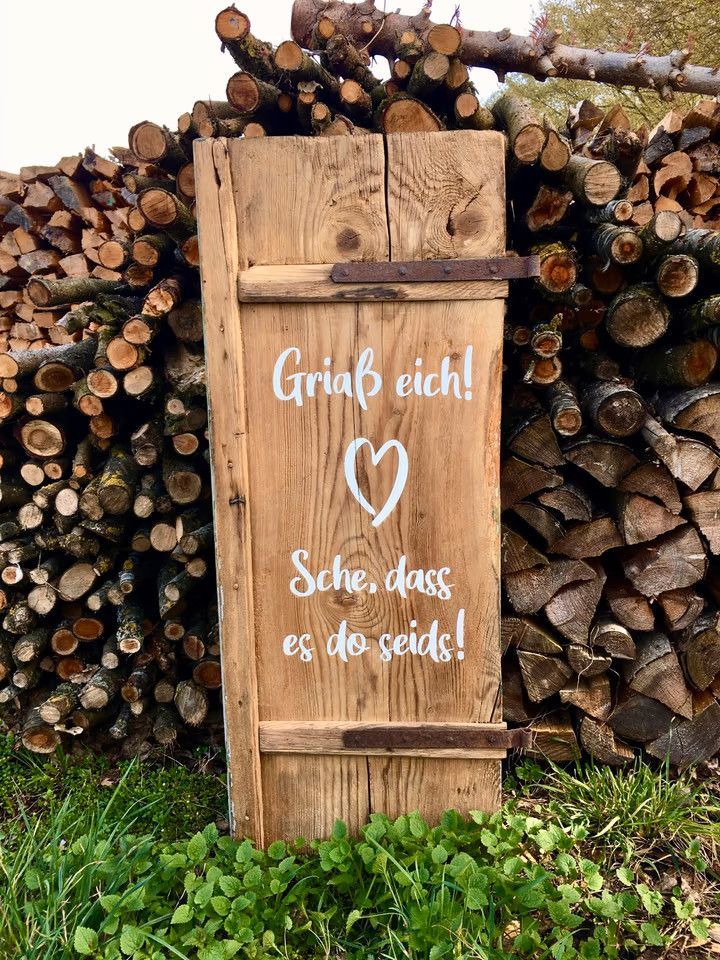 Griaß eich!
Sche, dass
es do seids!